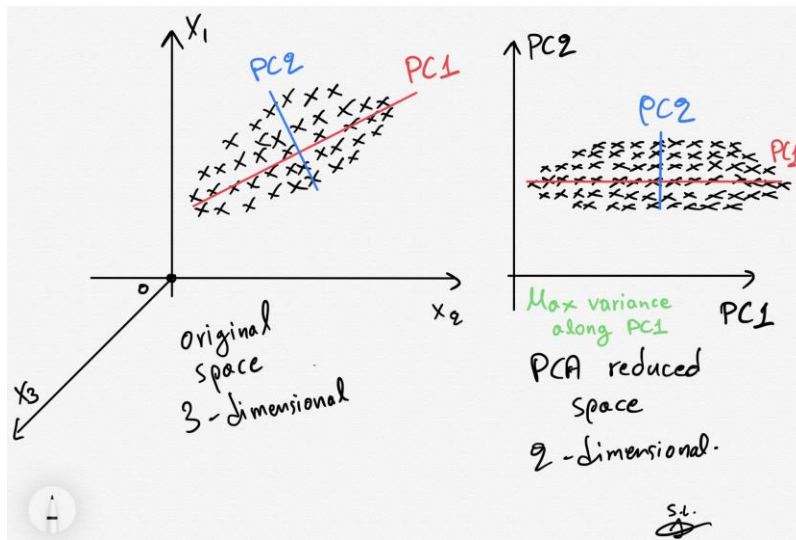 X1
PC2
PC1
0
X2
X3
original
space
3-dimensional
PC2
PC2
PC1
Max variance
along PC1
PC1
PCA reduced
space
2-dimensional.
S.L.